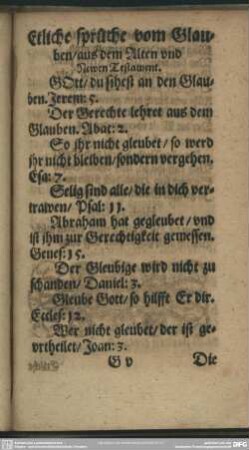 Etliche sprüche vom Glau-
ben/aus dem Alten vnd
Newen Testament.
GOtt/du sihest an den Glau-
ben. Jerem: 5.
Der Gerechte lehret aus dem
Glauben. Abac: 2.
So jhr nicht gleubet/so werd
jhr nicht bleiben/sondern vergehen.
Esa: 7.
Selig sind alle/die in dich ver-
trawen/Psal: 11.
Abraham hat gegleubet/vnd
ist jhm zur Gerechtigkeit gewessen.
Genes: 15.
Der Gleubige wird nicht zu
schanden/Daniel: 3.
Gleube Gott/so hilfft Er dir.
Eccles: 12.
Wer nicht gleubet/der ist ge-
vrtheilet/Joan: 3.
G v Die